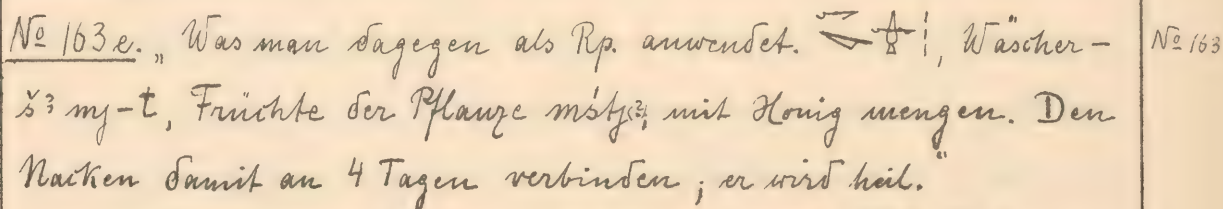 № 163e. „Was man dagegen als Rp. anwendet. , Wäscher-
šꜣmj-t, Früchte der Pflanze mśtj(?), mit Honig mengen. Den
Nacken damit an 4 Tagen verbinden; er wird heil.“
№ 163